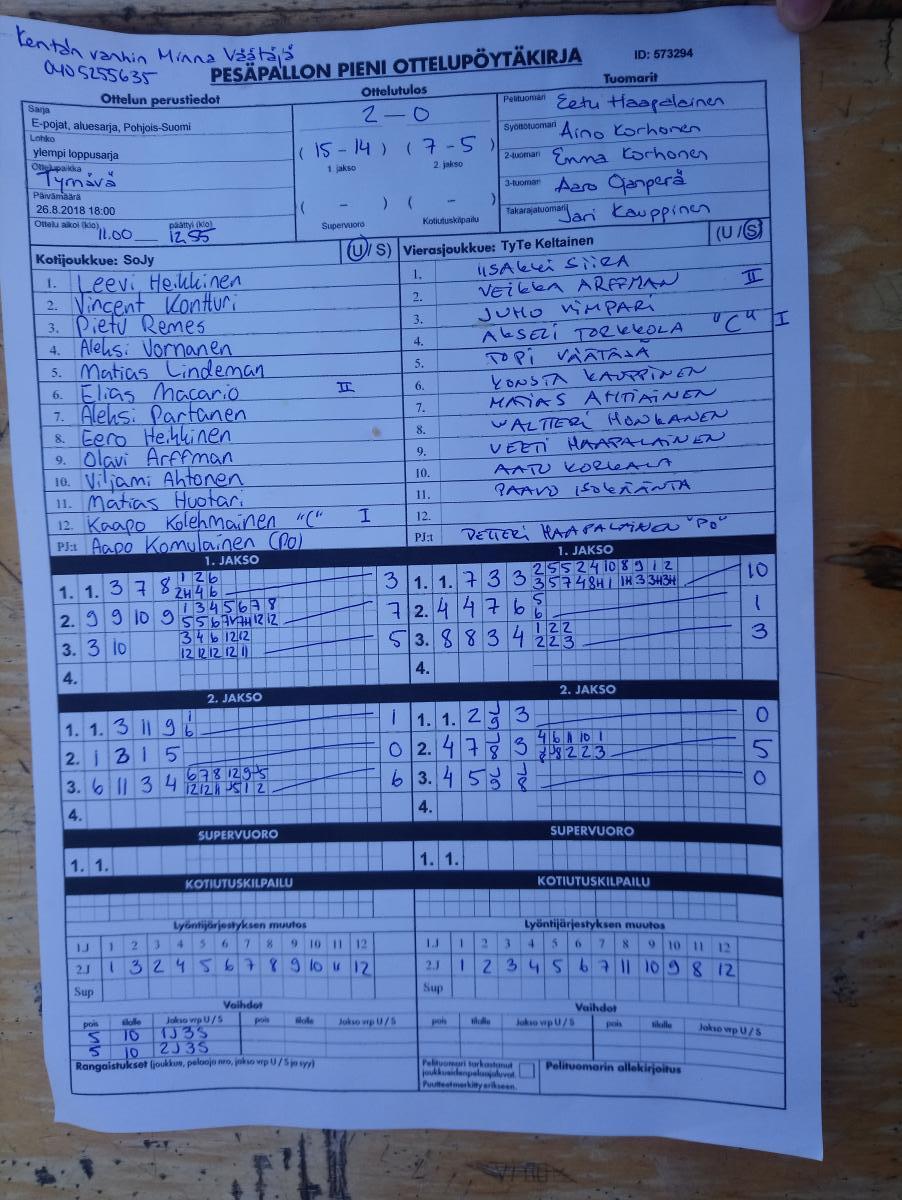 Kentän vanhin Minna Väätäjä
0405255635
PESÄPALLON PIENI OTTELUPÖYTÄKIRJA
ID: 573294
Ottelun perustiedot
Sarja
E-pojat, aluesarja, Pohjois-Suomi
Lohko
ylempi loppusarja
Ottelupaikka
Tyrnävä
Päivämäärä
26.8.2018 18:00
Ottelu alkoi (klo) 11.00 päättyi (klo) 12.55
Ottelutulos
2 - 0
( 15 - 14 ) ( 7 - 5 )
1. jakso 2. jakso
( - ) ( - )
Supervuoro Kotiutuskilpailu
Tuomarit
Pelituomari Eetu Haapalainen
Syöttötuomari Aino Korhonen
2-tuomari Emma Korhonen
3-tuomari Aaro Ojanperä
Takarajatuomari Jari Kauppinen
Kotijoukkue: SoJy (U / S)
1. Leevi Heikkinen
2. Vincent Kontturi
3. Pietu Remes
4. Aleksi Vornanen
5. Matias Lindeman
6. Elias Macario II
7. Aleksi Partanen
8. Eero Heikkinen
9. Olavi Arffman
10. Viljami Ahtonen
11. Matias Huotari
12. Kaapo Kolehmainen "C" I
PJ:t Aapo Komulainen (PO)
Vierasjoukkue: TyTe Keltainen (U / S)
1. IISAKKI SIIRA
2. VEIKKA ARFFMAN II
3. JUHO VIMPARI
4. AKSELI TORKKOLA "C" I
5. TOPI VÄÄTÄJÄ
6. KONSTA KAUPPINEN
7. MATIAS AHTIAINEN
8. WALTTERI HONKANEN
9. VEETI HAAPALAINEN
10. AATU KORKALA
11. PAAVO ISOKÄÄNTÄ
12.
PJ:t PETTERI HAAPALAINEN "PO"
1. JAKSO
1. 1. 3 7 8 1 2 6 3
2H 4 6
2. 9 9 10 9 1 3 4 5 6 7 8 7
3. 3 10 3 4 6 12 12 5
12 12 12 12 11
4.
1. JAKSO
1. 1. 7 3 3 2 5 5 2 4 10 8 9 1 2 10
2. 4 4 7 6 5 1
6
3. 8 8 3 4 1 2 2 3
2 2 3
4.
2. JAKSO
1. 1. 3 11 9 1 1
6
2. 1 3 1 5 0
3. 6 11 3 4 6 7 8 12 9 5 6
4.
2. JAKSO
1. 1. 2 J9 3 0
2. 4 7 J8 3 4 6 11 10 1 5
3. 4 5 J9 J8 0
4.
SUPERVUORO
1. 1.
SUPERVUORO
1. 1.
KOTIUTUSKILPAILU
KOTIUTUSKILPAILU
Lyöntijärjestyksen muutos
1.J 1 2 3 4 5 6 7 8 9 10 11 12
2.J 1 3 2 4 5 6 7 8 9 10 11 12
Sup
Lyöntijärjestyksen muutos
1.J 1 2 3 4 5 6 7 8 9 10 11 12
2.J 1 2 3 4 5 6 7 11 10 9 8 12
Sup
Vaihdot
pois tilalle Jakso vrp U / S pois tilalle Jakso vrp U / S
5 10 1J3S
5 10 2J3S
Vaihdot
pois tilalle Jakso vrp U / S pois tilalle Jakso vrp U / S
Rangaistukset (joukkue, pelaaja nro, jakso vrp U / S ja syy)
Pelituomari tarkastanut
joukkueidenpelaajaluvat.
Puutteetmerkitty erikseen.
Pelituomarin allekirjoitus